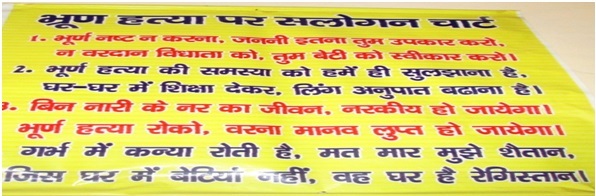 भ्रूण हत्या पर सलोगन चार्ट
1. भूर्ण नष्ट न करना, जननी इतना तुम उपकार करो,
न वरदान विधाता को, तुम बेटी को स्वीकार करो।
2. भूर्ण हत्या की समस्या को हमें ही सुलझाना है,
घर-घर में शिक्षा देकर, लिंग अनुपात बढाना है।
3. बिन नारी के नर का जीवन, नरकीय हो जायेगा।
भूर्ण हत्या रोको, वरना मानव लुप्त हो जायेगा।
गर्भ में कन्या रोती है, मत मार मुझे शैतान,
जिस घर में बेटियां नहीं, वह घर है रेगिस्तान।